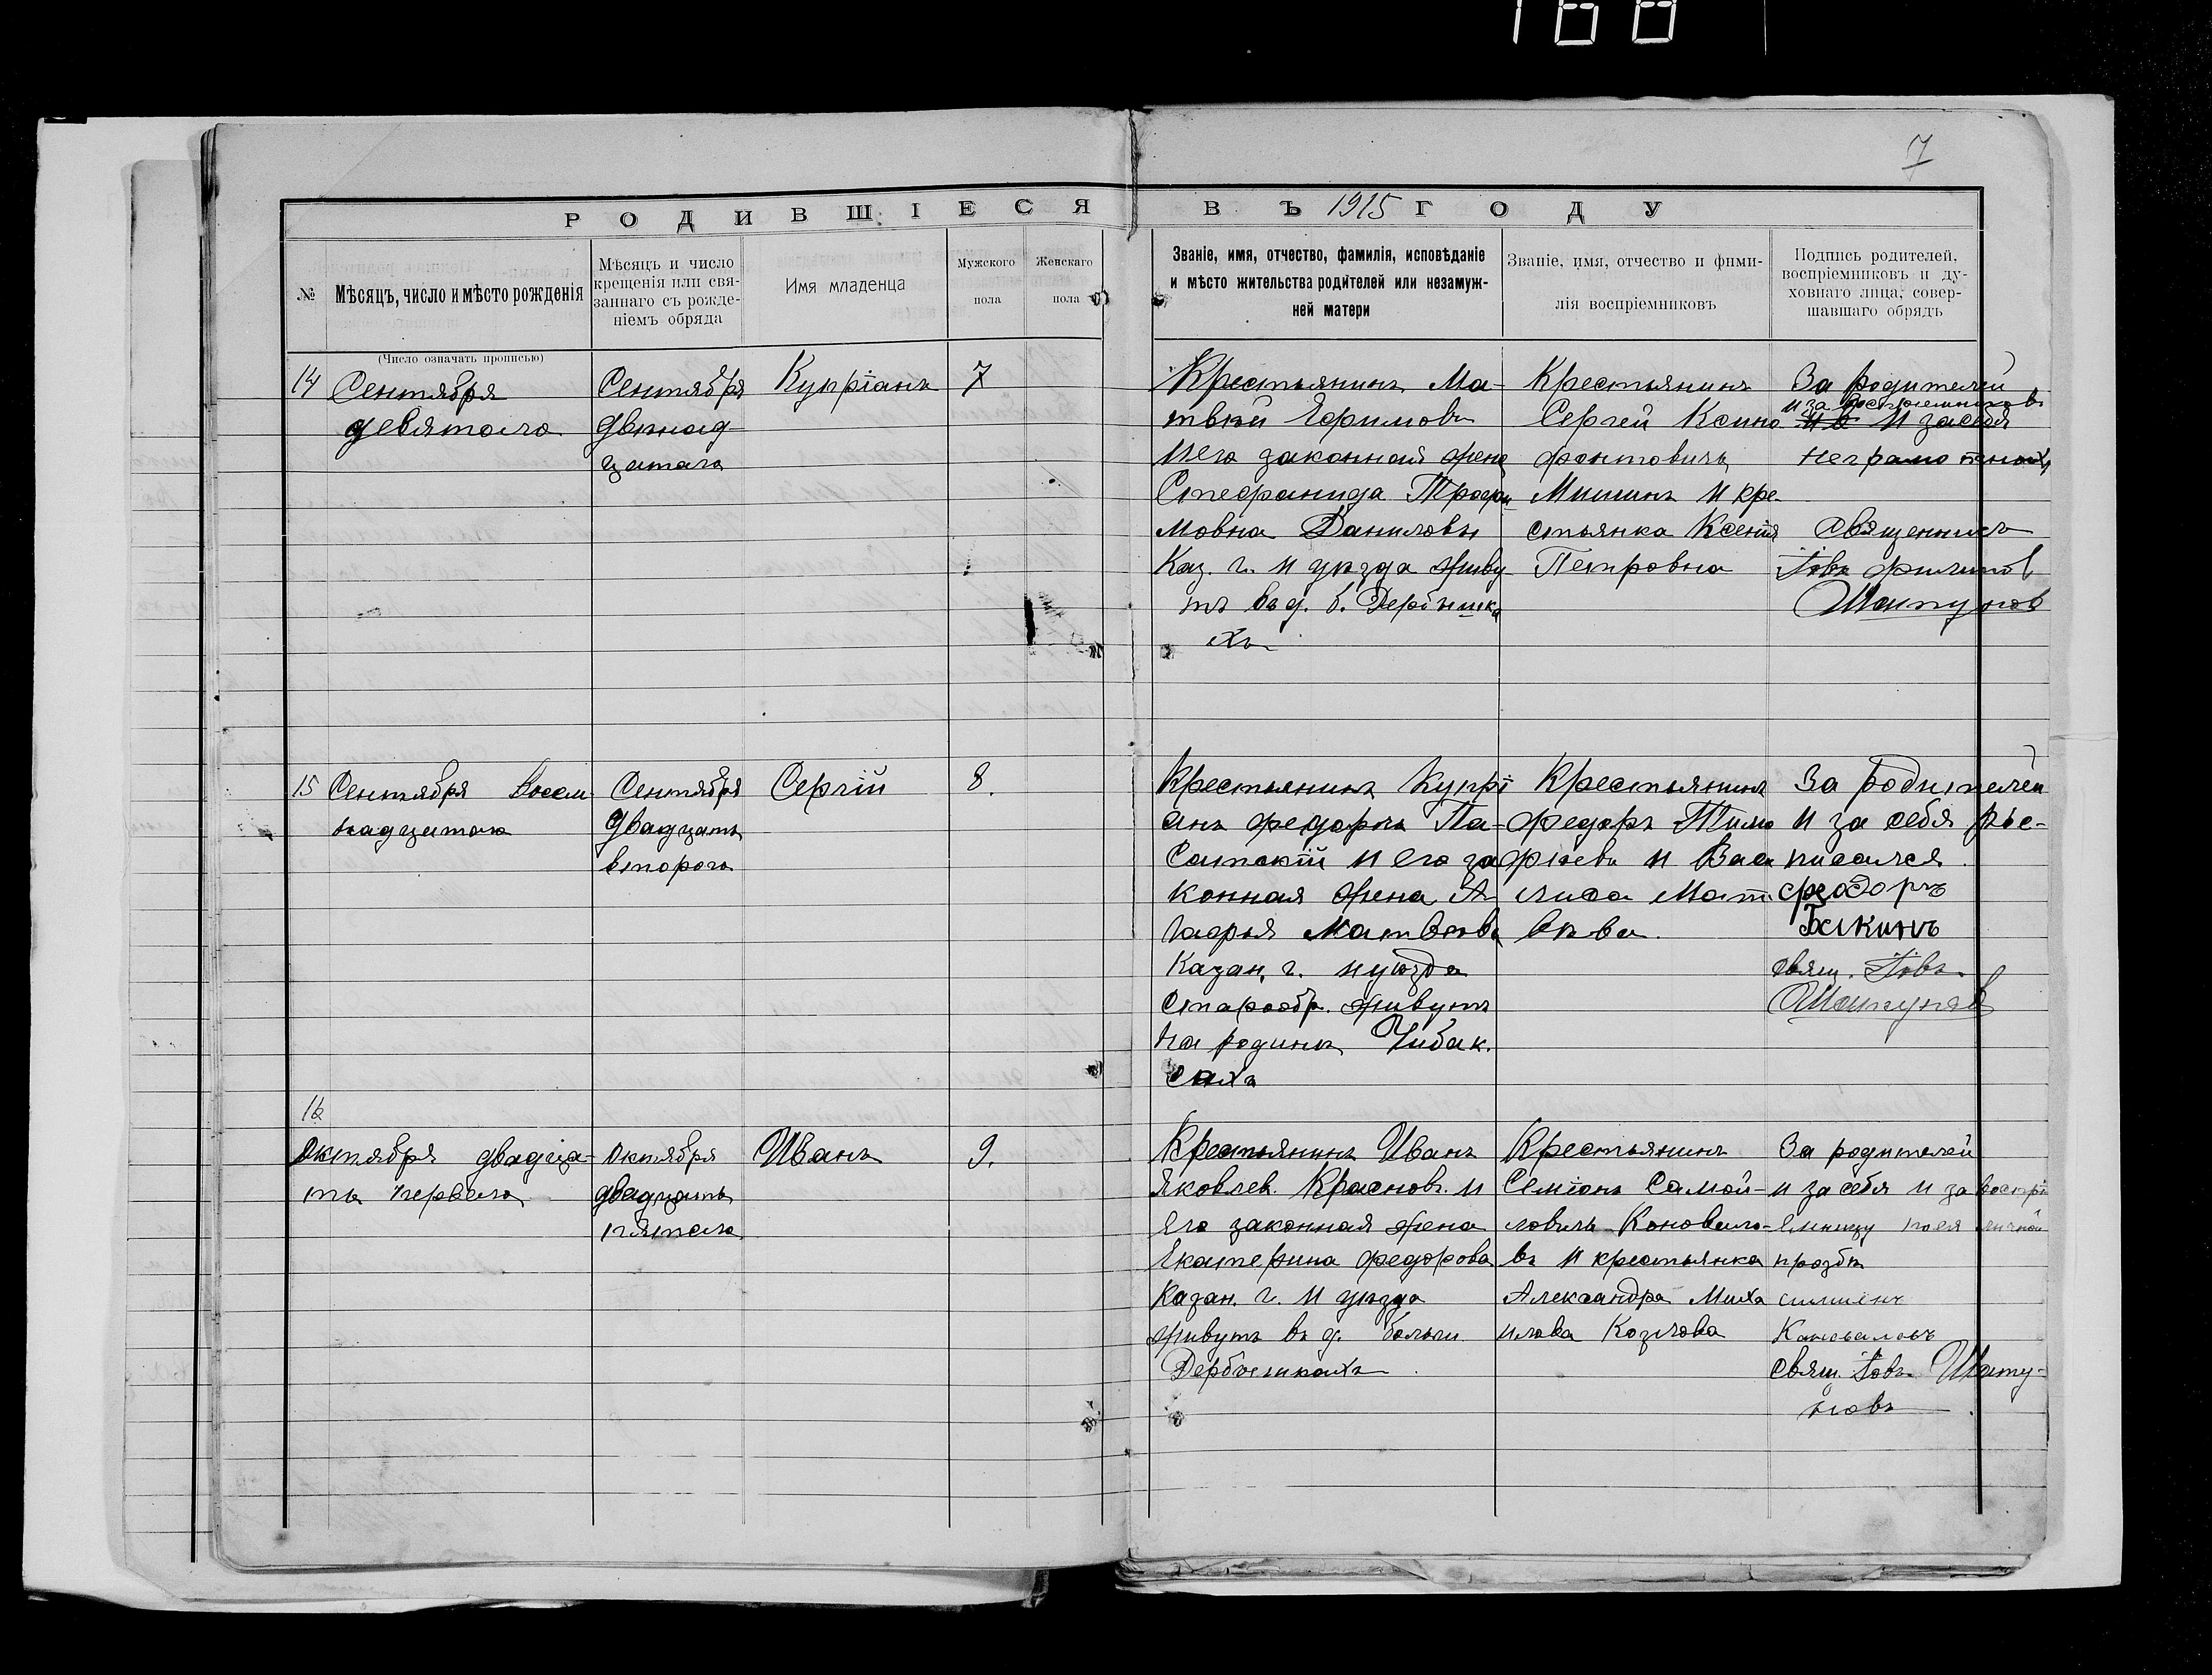 168
7
РОДИВШІЕСЯ
ВЪ 1915 ГОДУ
№
Мѣсяцъ, число и мѣсто рожденія
Мѣсяцъ и число
крещенія или свя-
заннаго съ рожде-
ніемъ обряда
Имя младенца
Мужского
пола
Женскаго
пола
Званіе, имя, отчество, фамилія, исповѣданіе
и мѣсто жительства родителей или незамуж-
ней матери
Званіе, имя, отчество и фами-
лія воспріемниковъ
Подпись родителей,
воспріемниковъ и ду-
ховнаго лица, совер-
шавшаго обрядъ
(Число означать прописью)
14
Сентября
девятаго
Сентября
двѣнад-
цатаго
Купріанъ
7
Крестьянинъ Ма-
твѣй Ефимовъ
и его законная жена
Стефанида Трофи
мовна Даниловы
Каз. г. и уѣзда живу
тъ въ д. б. Дербышка
хъ
Крестьянинъ
Сергей Ксино
фонтовичъ
Мишинъ и кре-
стьянка Ксенія
Петровна
За родителей
и за воспріемниковъ
и за себя
неграмотныхъ
Священникъ
Іовъ Филипов
Шатунов
15
Сентября восем
надцатаго
Сентября
двадцать
второго
Сергій
8.
Крестьянинъ Купрі
анъ Федоръ Па-
Сатскій и его за
конная жена А-
гафья Матвѣева
Казан, г. и уѣзда
Старообр. живутъ
на родинѣ Чибак.
сахъ
Крестьянинъ
Федоръ Тимо
фѣевъ и Васи
лиса Мат.
вѣева.
За родителей
и за себя рос-
писался.
федоръ
Бакинъ
свящ. Іовъ
Шатунов
16
Октября двадца-
ть перваго
Октября
двадцать
пятаго
Иванъ
9.
Крестьянинъ Иванъ
Яковлев. Красновъ. и
Его законная жена
Екатерина Федорова
Казан. г. и уѣзда
живутъ въ д. больши
Дербышкахъ
Крестьянинъ
Семіонъ Самой-
ловичъ Коновало-
въ и крестьянка
Александра Миха
илова Козлова
За родителей
и за себя и за воспрі
емницу по ея личной
прозбѣ
симиенъ
Коноваловъ
свящ. Іовъ Шату-
новъ